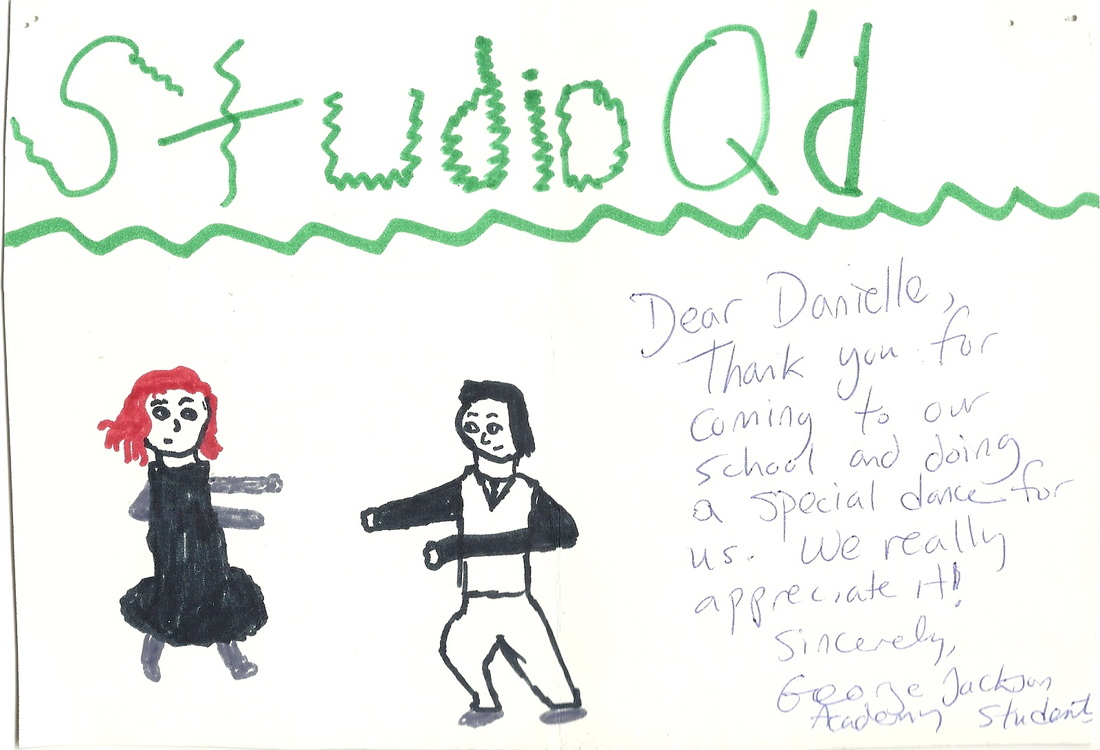 Studio Q'd
Dear Danielle,
Thank you for
coming to our
school and doing
a special dance for
us. We really
appreciate it!
Sincerely,
George Jackson
Academy Student